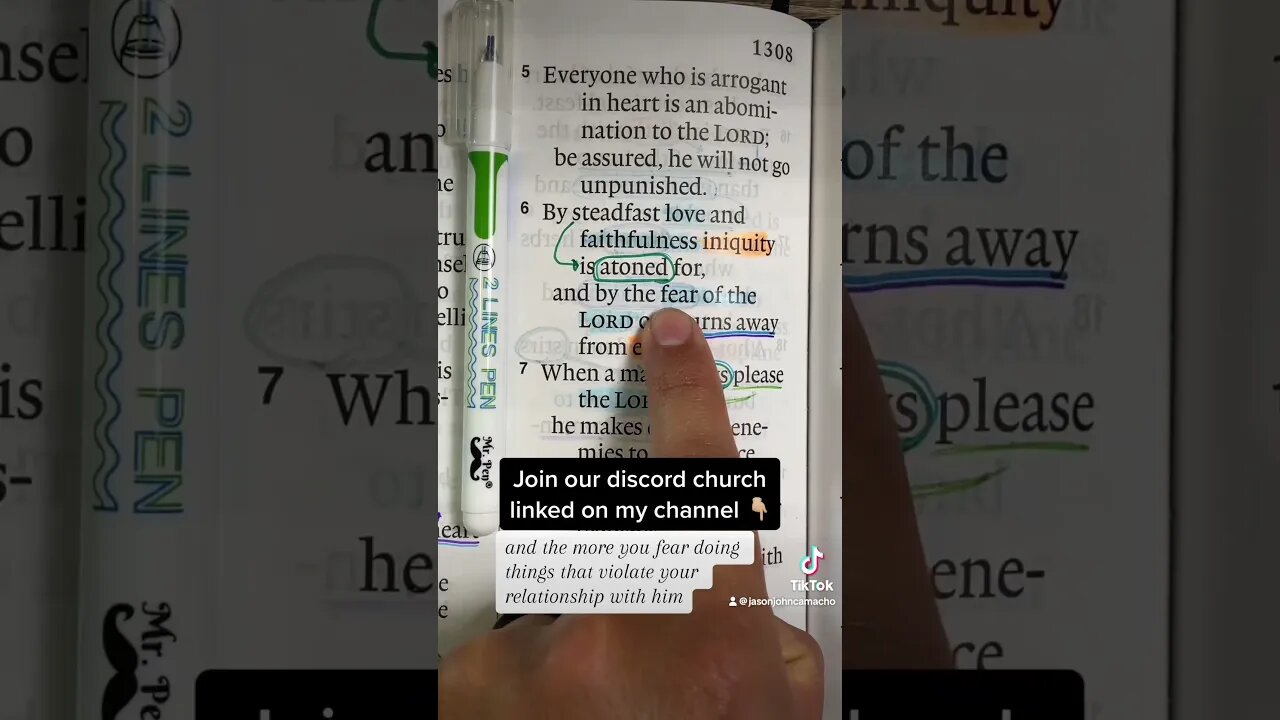 1308
5 Everyone who is arrogant
in heart is an abomi-
nation to the LORD;
be assured, he will not go
unpunished.
6 By steadfast love and
faithfulness iniquity
is atoned for,
and by the fear of the
LORD turns away
from
7 When a please
the LORD
he makes ene-
mies to
Join our discord church
linked on my channel 👇🏼
and the more you fear doing
things that violate your
relationship with him
ith
TikTok
@jasonjohncamacho
2 LINES PEN
Mr. Pen®